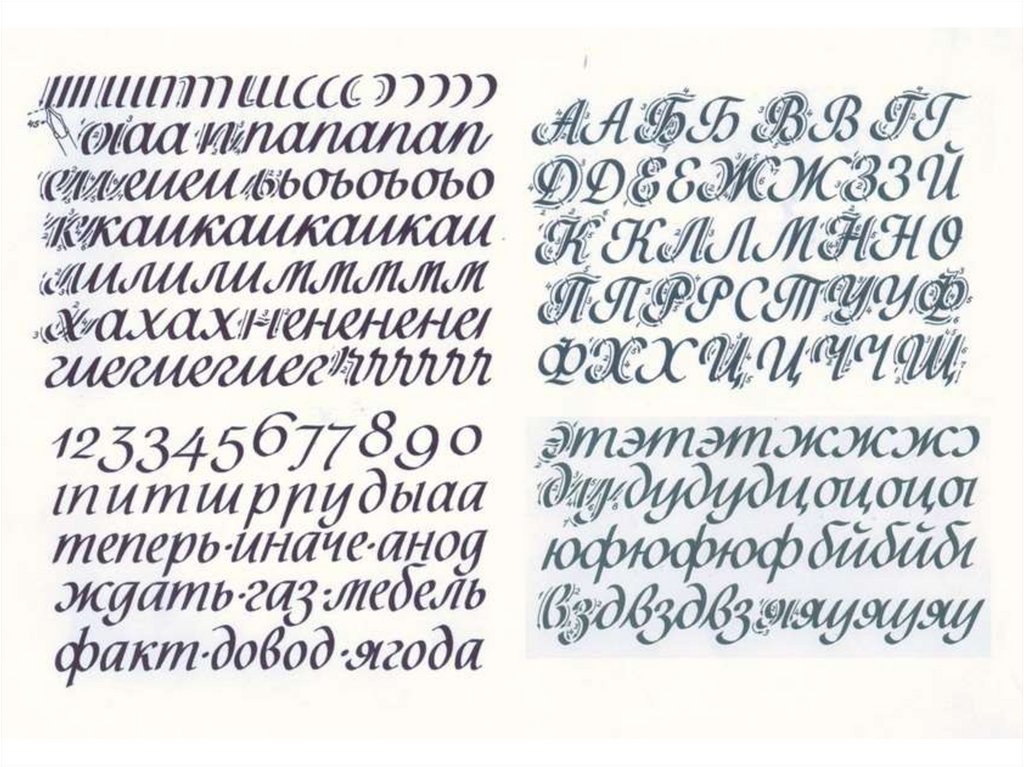 45°
ааа ипапапап
еиеиеиьоьоьоьо
каикаикаикаи
лилилилимммммм
хахахнененене
гиегиегиегиегггггг
1233456778 9 0
1питшррпудыаа
теперь·иначе·анод
ждать·газ·мебель
факт·довод·ягода
ААББВВГГ
ДДЕЕЖЖЗЗИЙ
ККЛЛМННО
ППРРСТУУФ
ФХХЦЦЧЧЩ
этэтэтжжж
дудудуцоцоцо
юфюфюфбйбйб
вздвздвзяуяуяу